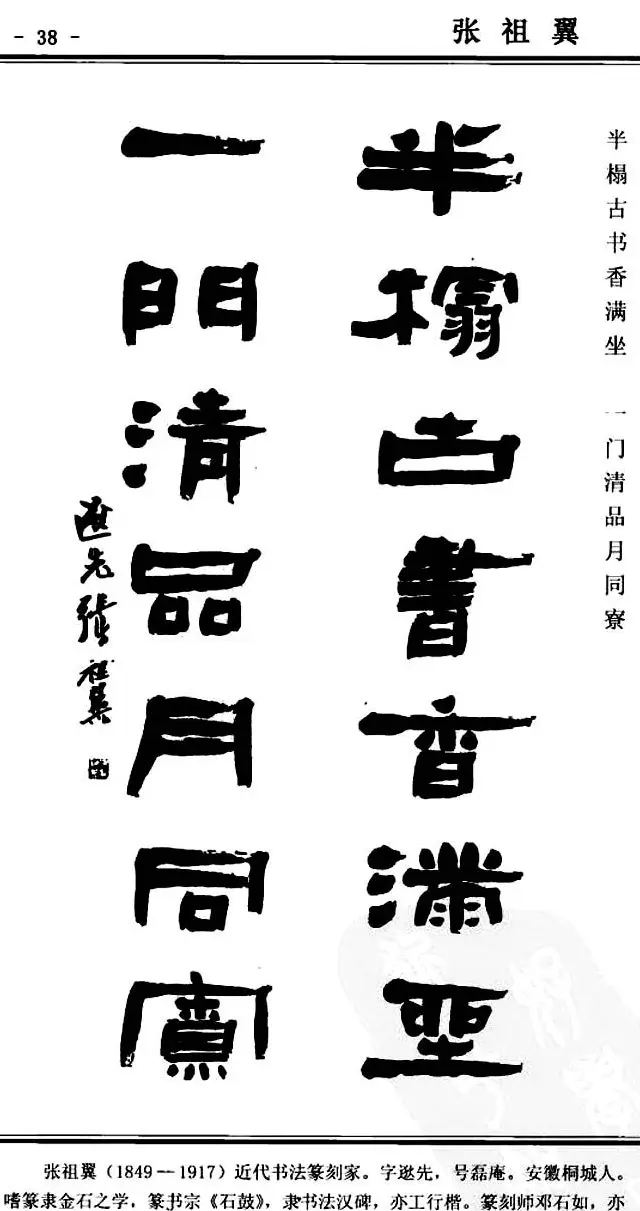 - 38 -
张祖翼
半榻古书香满坐 一门清品月同寮
半榻古書香满坐
一門清品月同寮
逖先張祖翼
张祖翼(1849—1917)近代书法篆刻家。字逖先,号磊庵。安徽桐城人。
嗜篆隶金石之学,篆书宗《石鼓》,隶书法汉碑,亦工行楷。篆刻师邓石如,亦